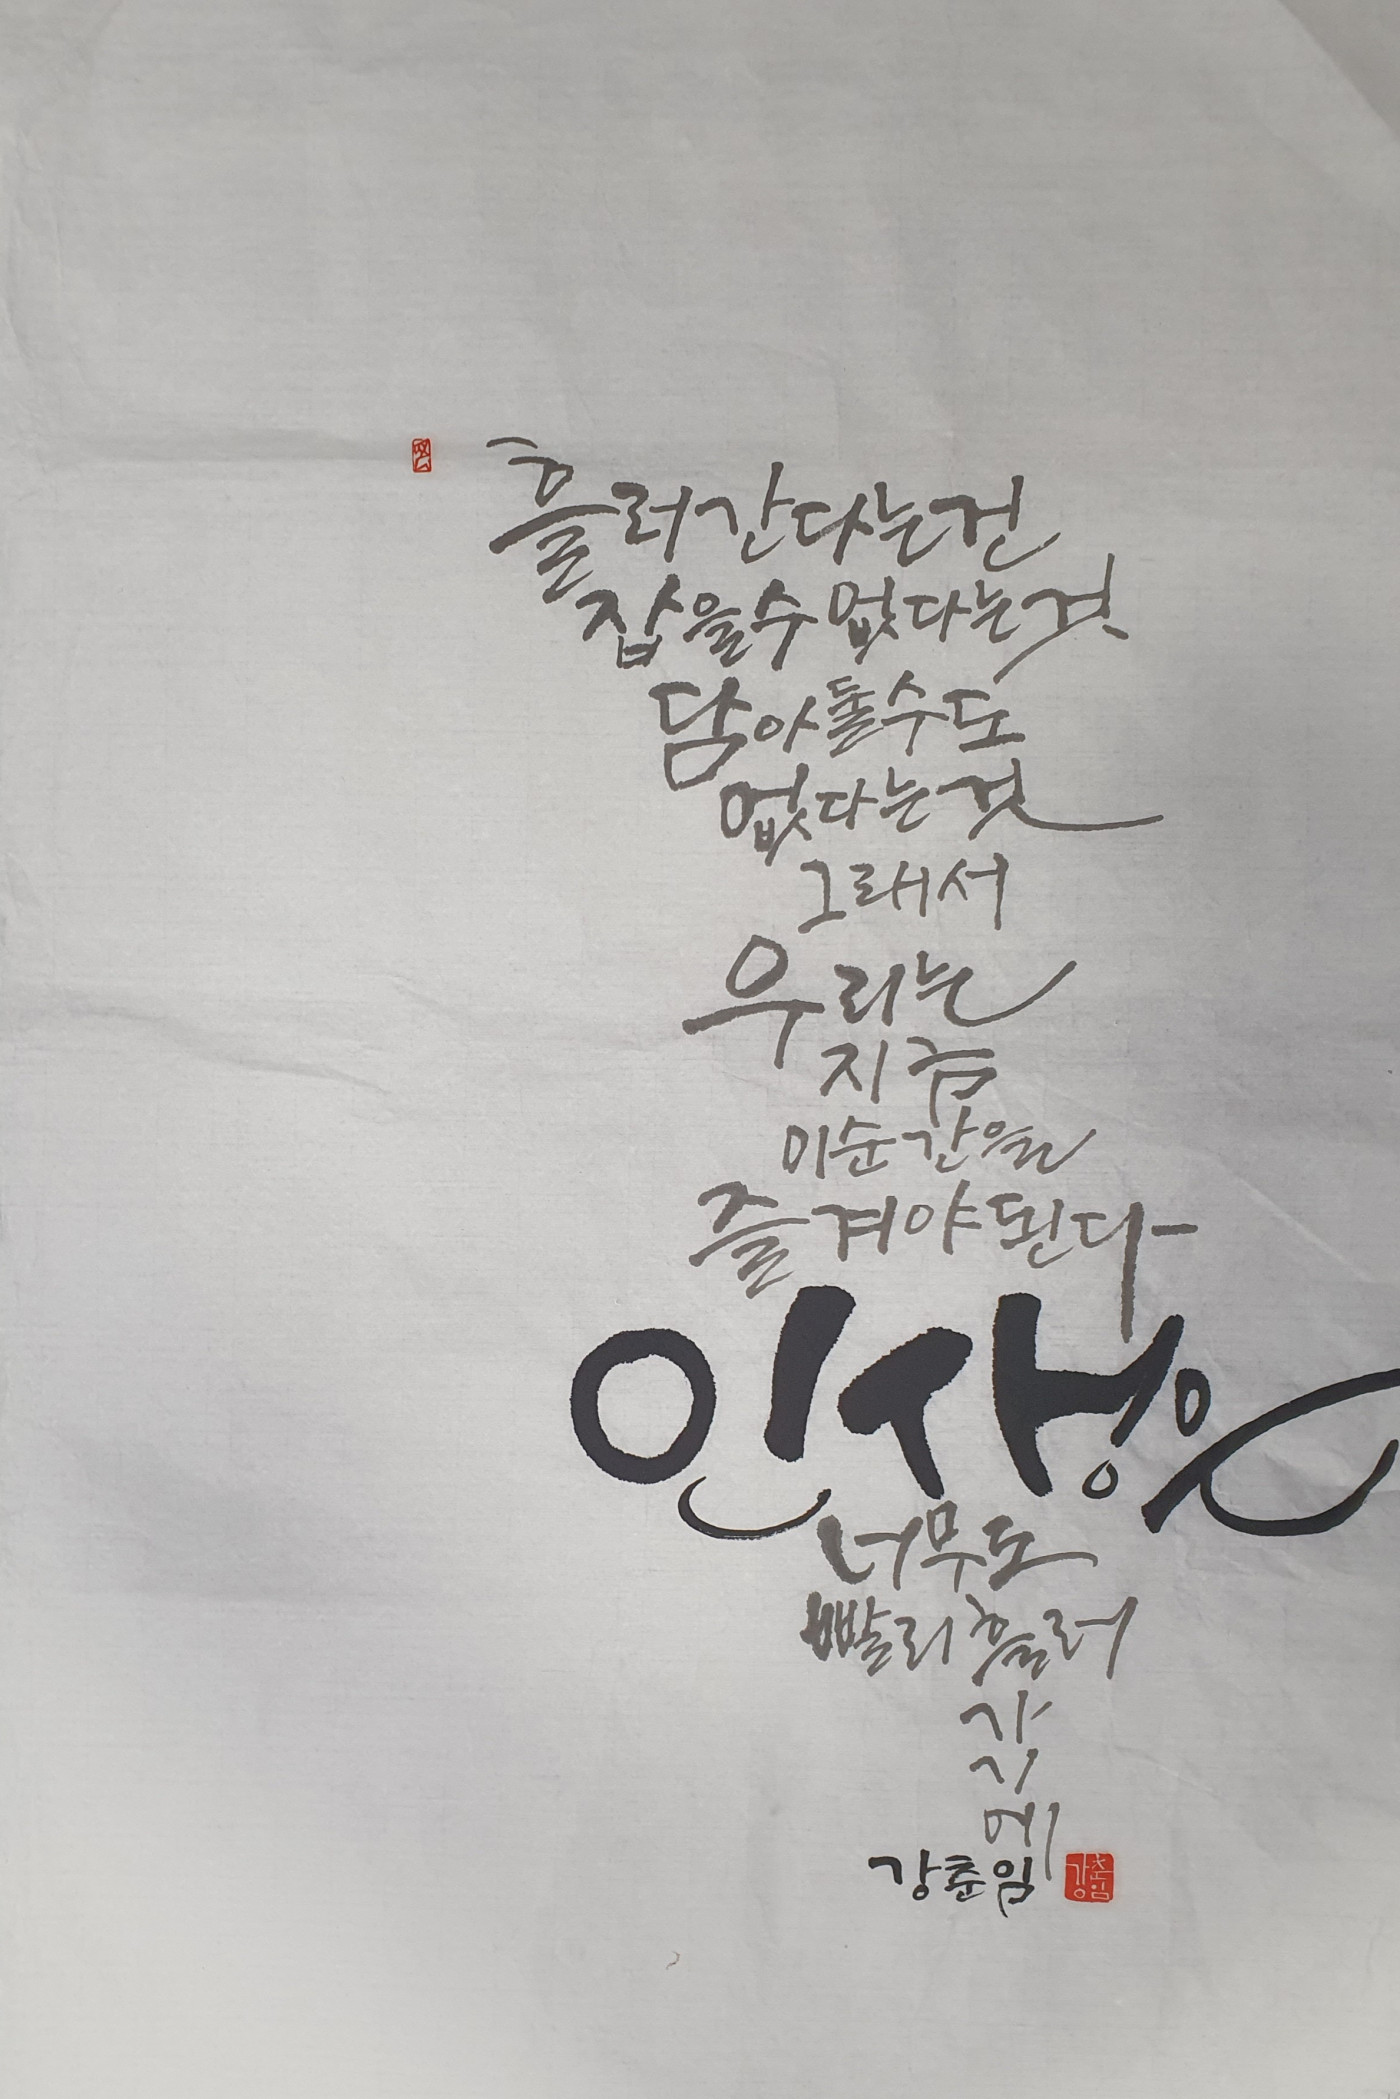 흘러간다는건
잡을수 없다는것
담아둘수도
없다는것
그래서
우리는
지금
이순간을
즐겨야된다-
인생은
너무도
빨리흘러
가
기
에
강춘임
강춘임